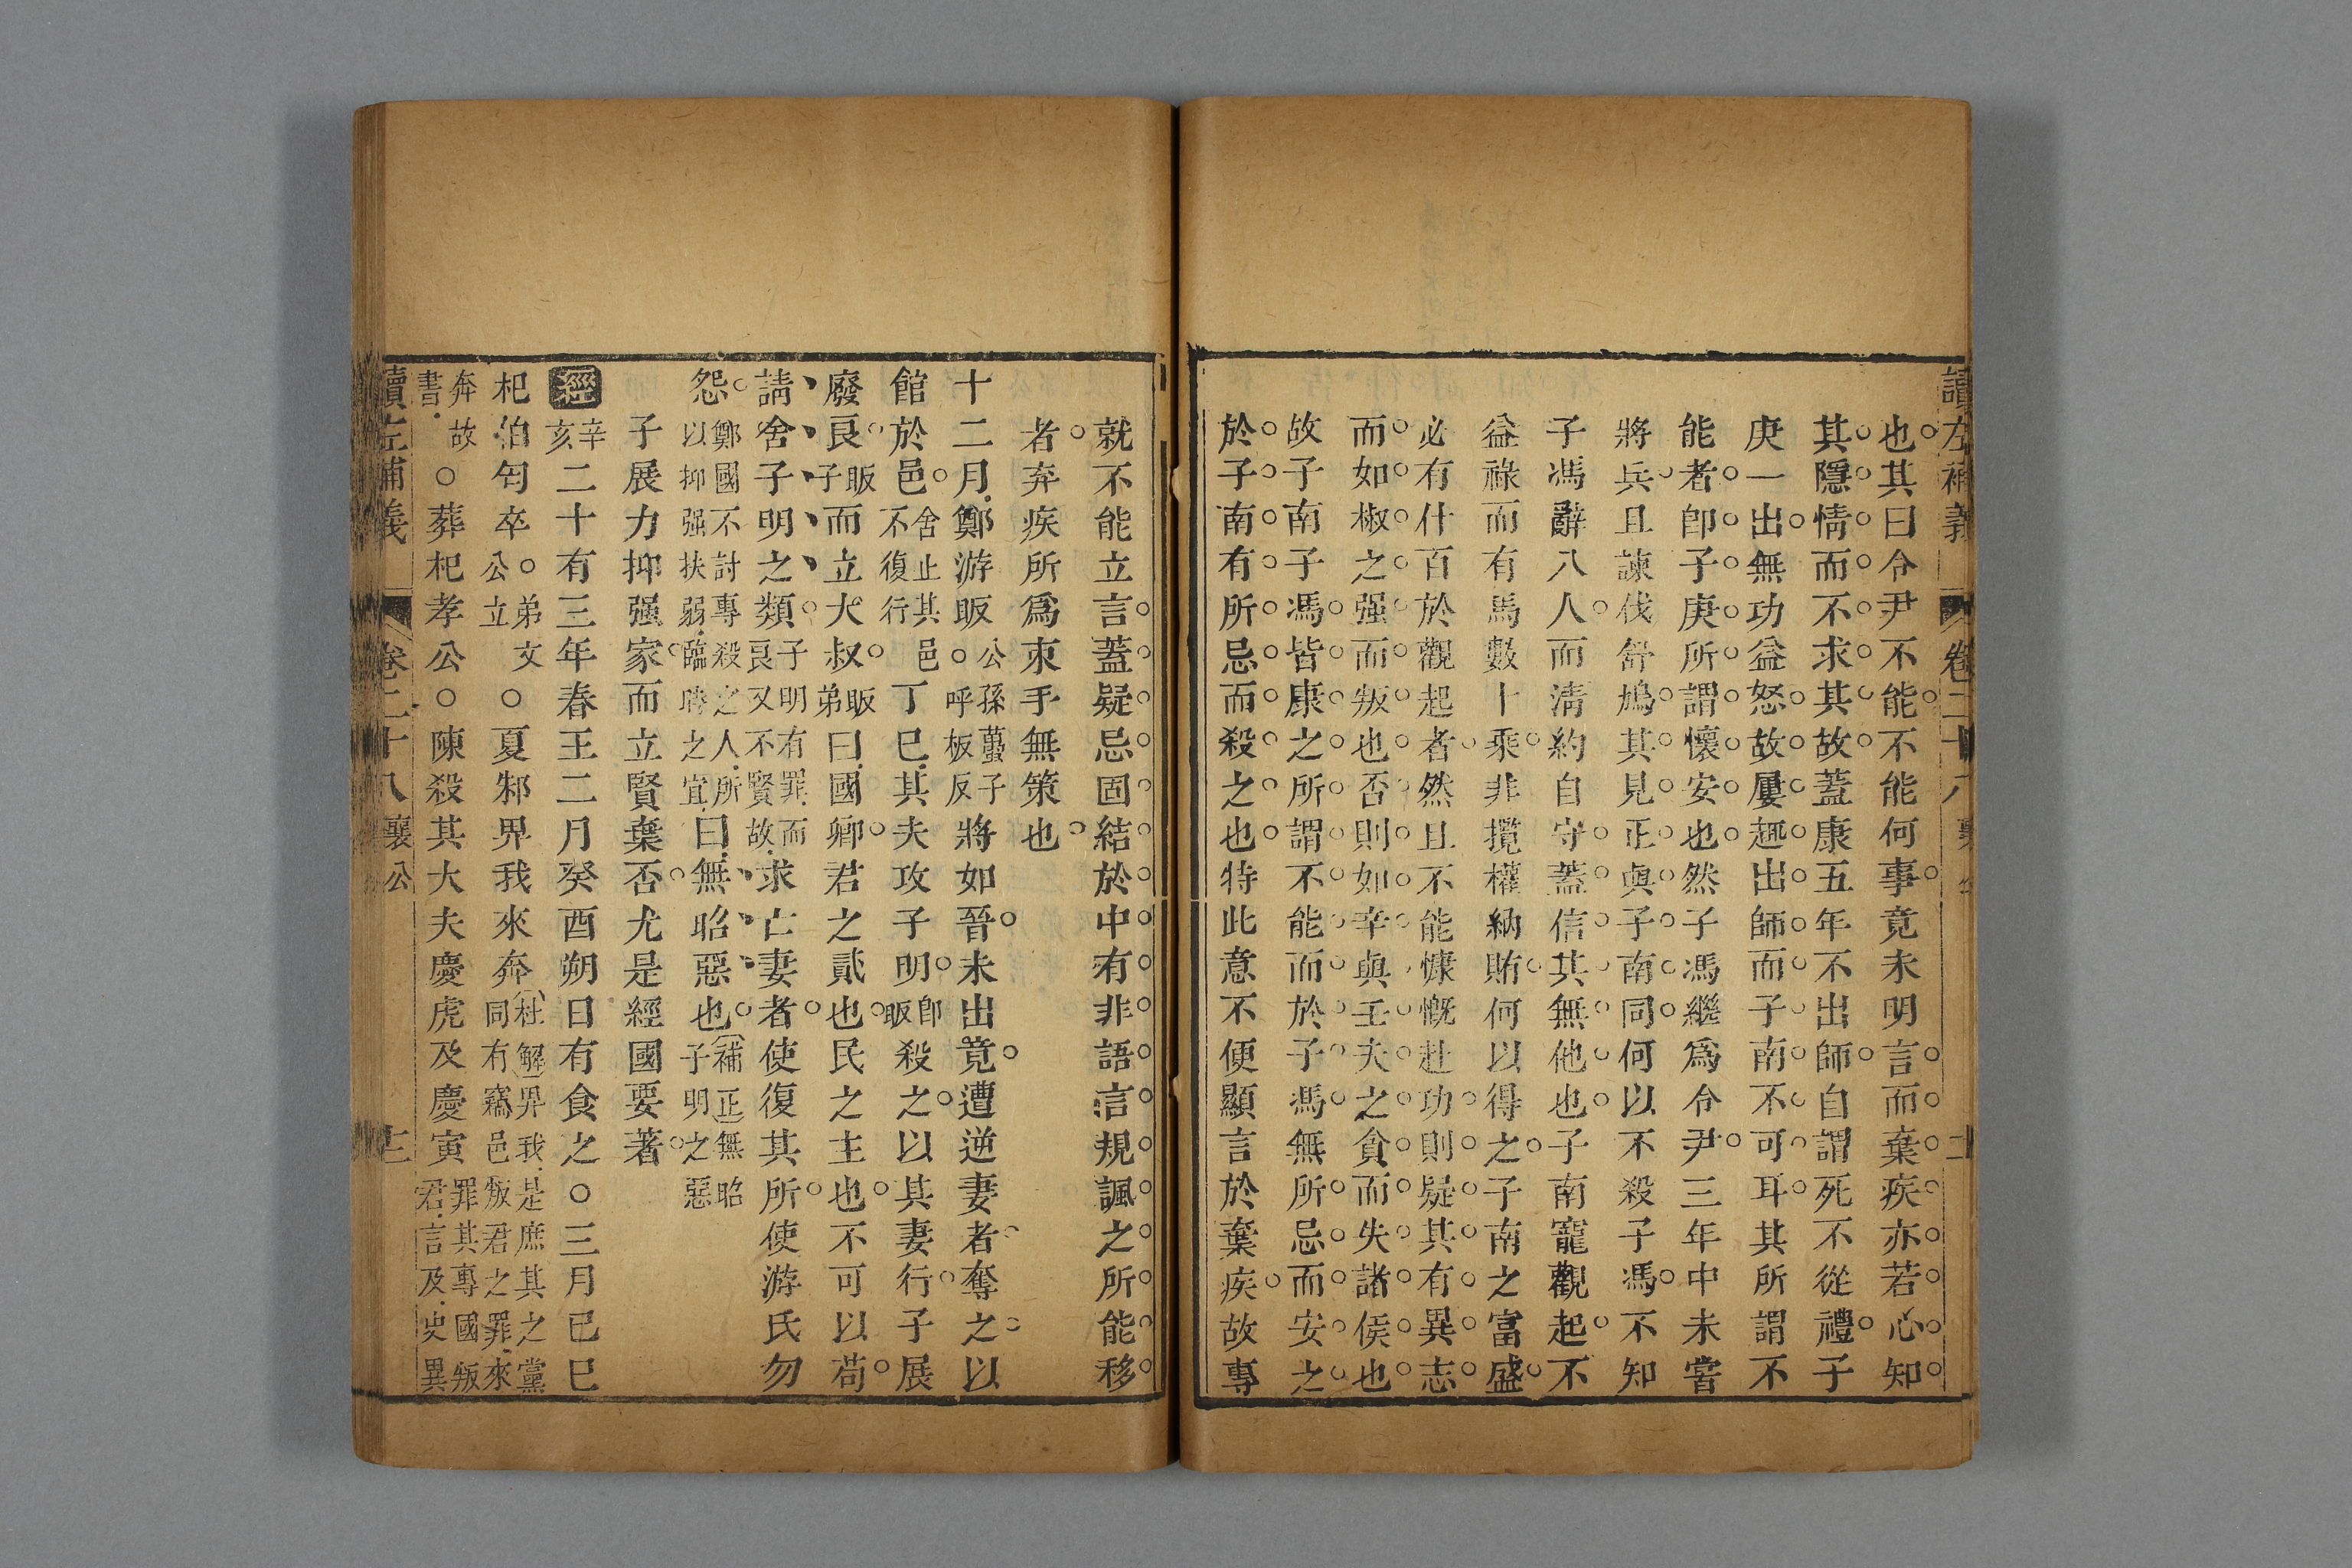 讀左補義 卷二十八 襄公
也其曰令尹不能不能何事竟未明言而棄疾亦若心知
其隱情而不求其故蓋康五年不出師自謂死不從禮子
庚一出無功益怒故屢趣出師而子南不可耳其所謂不
能者卽子庚所謂懷安也然子馮繼爲令尹三年中未嘗
將兵且諫伐舒鳩其見正與子南同何以不殺子馮不知
子馮辭八人而淸約自守蓋信其無他也子南寵觀起不
益祿而有馬數十乘非攬權納賄何以得之子南之富盛
必有什百於觀起者然且不能慷慨赴功則疑其有異志
而如椒之强而叛也否則如辛與壬夫之貪而失諸侯也
故子南子馮皆康之所謂不能而於子馮無所忌而安之
於子南有所忌而殺之也特此意不便顯言於棄疾故專
就不能立言蓋疑忌固結於中有非語言規諷之所能移
者弃疾所爲束手無策也
十二月鄭游眅公孫蠆子○呼板反將如晉未出竟遭逆妻者奪之以
館於邑舍止其邑不復行丁巳其夫攻子明卽眅殺之以其妻行子展
廢良眅子而立大叔眅弟曰國卿君之貳也民之主也不可以苟
請舍子明之類子明有罪而良又不賢故求亡妻者使復其所使游氏勿
怨鄭國不討專殺之人所以抑强扶弱臨時之宜曰無昭惡也補正無昭子明之惡
子展力抑强家而立賢棄否尤是經國要著
經辛亥二十有三年春王二月癸酉朔日有食之○三月己巳
杞伯匄卒○弟文公立○夏邾畀我來奔杜解畀我是庶其之黨同有竊邑叛君之罪來
奔故書○葬杞孝公○陳殺其大夫慶虎及慶寅罪其專國叛君言及史異
讀左補義 卷二十八 襄公